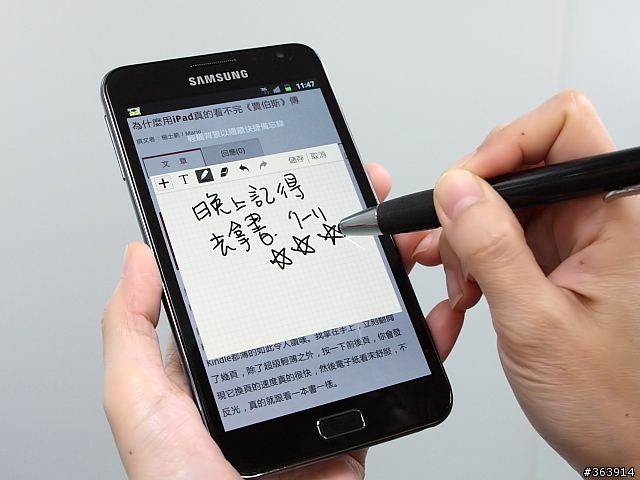 SAMSUNG
11:47
為什麼用iPad真的看不完《賈伯斯》傳
輕觸背景以隱藏快捷備忘錄
文 章
回應(0)
T
儲存
取消
晚上記得
去拿書. 7-11
Kindle都薄的如此令人讚嘆。我拿在手上，立刻翻開
了幾頁，除了超級輕薄之外，按一下前後頁，你會發
現它換頁的速度真的很快，然後電子紙看來舒服，不
反光，真的就跟看一本書一樣。
#363914